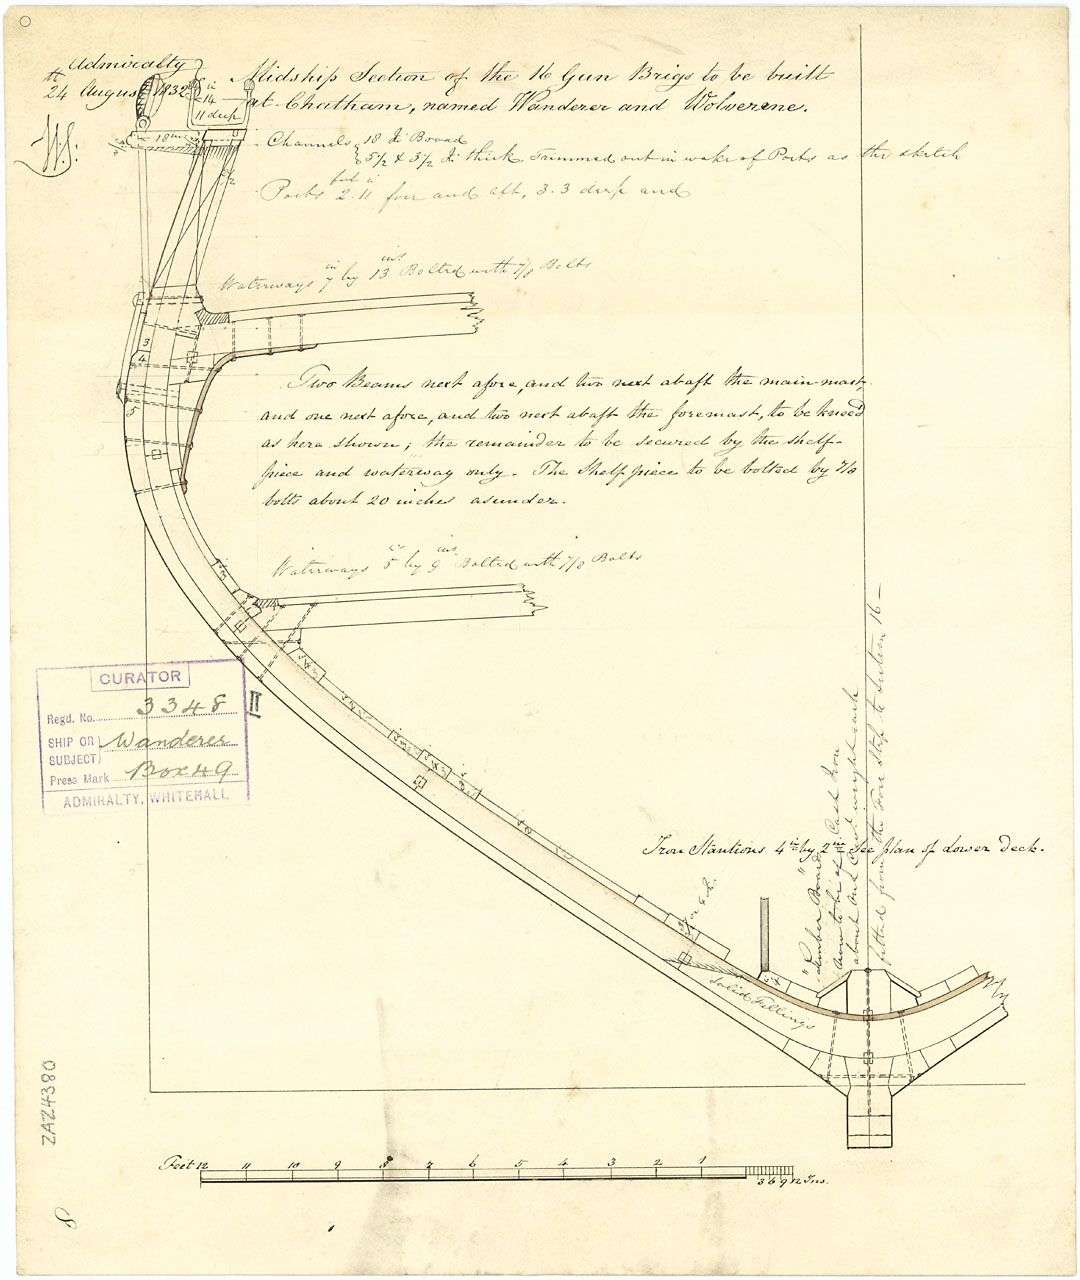 Admiralty
24th August 1832
Midship Section of the 16 Gun Brigs to be built
at Chatham, named Wanderer and Wolverene.
in
14
11 deep
18 ins
Channels 18 In Broad
5 1/2 & 3 1/2 In thick Trimmed out in wake of Ports as the sketch
feet i
Ports 2.11 fore and aft, 3.3 deep and
in ins
Waterways 7 by 13 Bolted with 7/8 Bolts
3
4
5
Two Beams next afore, and two next abaft the main-mast,
and one next afore, and two next abaft the foremast, to be kneed
as here shown; the remainder to be secured by the shelf-
piece and waterway only. The Shelf piece to be bolted by 7/8
bolts about 20 inches asunder.
in ins
Waterways 5 by 9 Bolted with 7/8 Bolts
CURATOR
Regd. No. 3348
SHIP OR SUBJECT Wanderer
Press Mark Box 49
ADMIRALTY, WHITEHALL
II
Iron Stantions 4 in by 2 in See plan of Lower deck.
Limber Boards
now to be of Cast Iron
about one Cwt weight each
fitted from the Fore Step to Section 16
Solid Fillings
ZAZ4380
Feet 12 11 10 9 8 7 6 5 4 3 2 1 3 6 9 12 Ins.
8